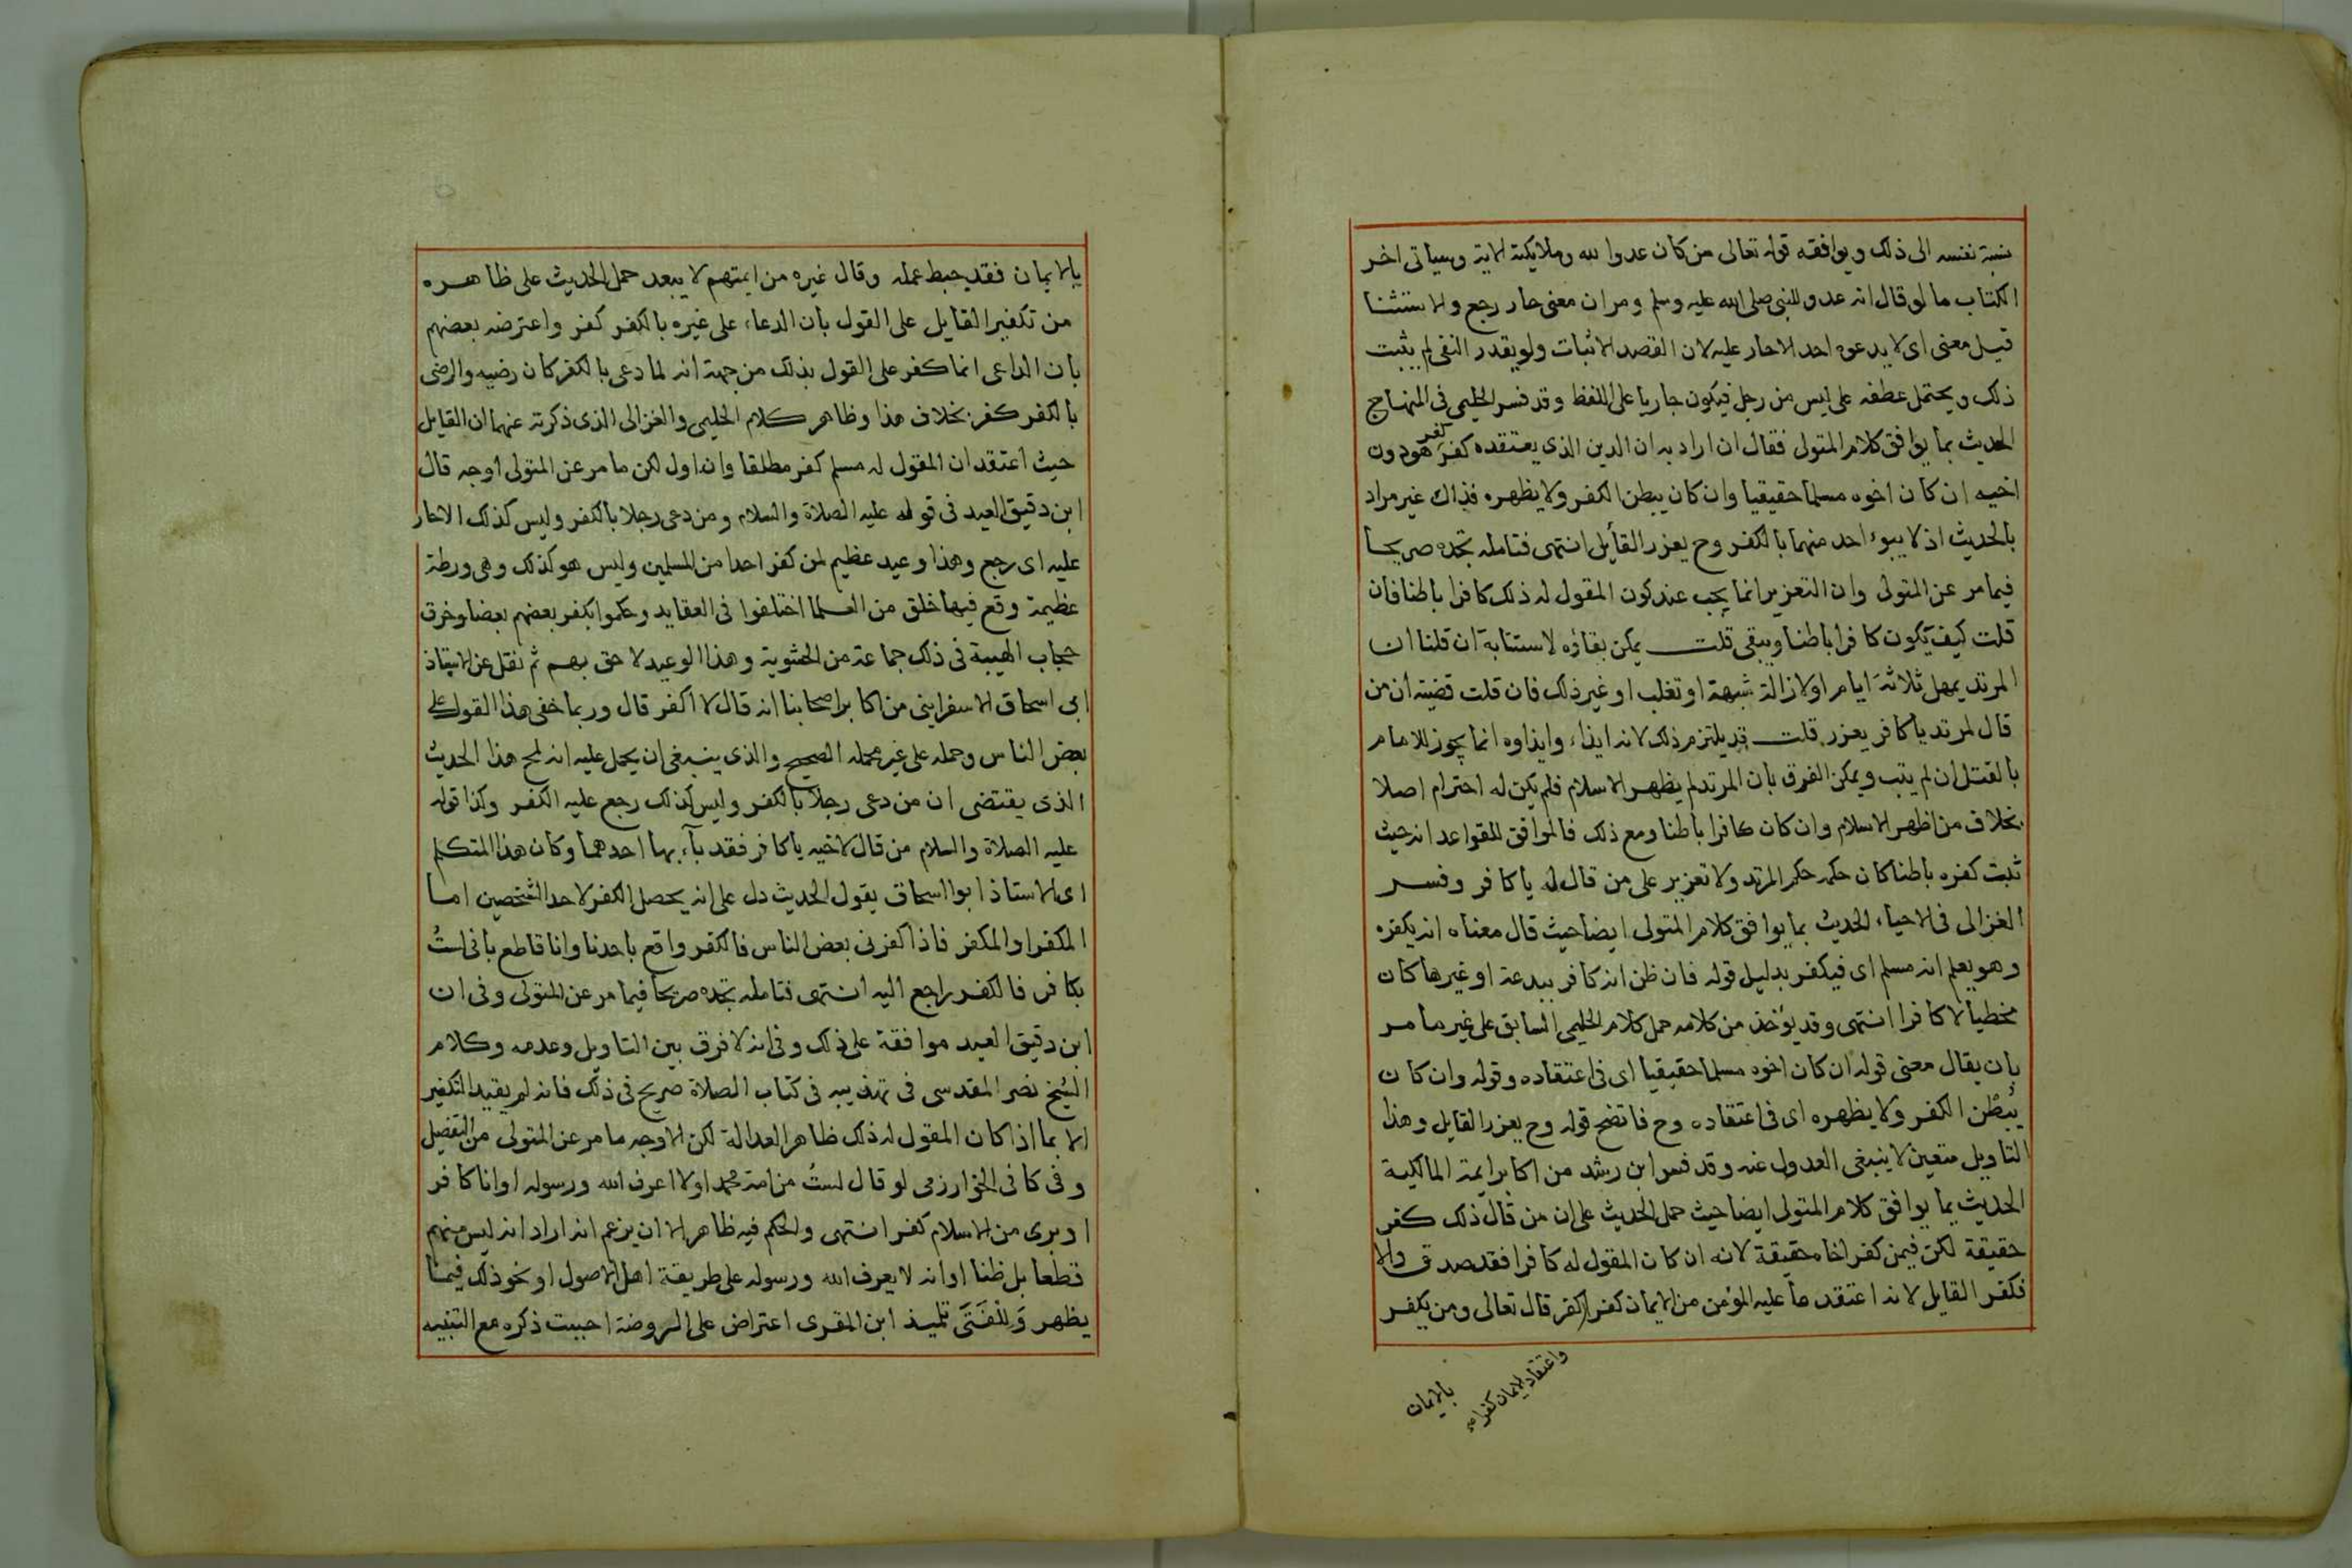 نسبة نفسه الى ذلك ويوافقه قوله تعالى من كان عدوا لله وملايكته الاية وسياتى اخر
الكتاب ما لو قال انه عدو للنبى صلى الله عليه وسلم ومر ان معنى حار رجع والاستثنا
قيل معنى اى لا يدعوه احد الا حار عليه لان القصد الاثبات ولو يقدر النفى لم يثبت
ذلك ويحتمل عطفه على ليس من رجل فيكون جاريا على اللفظ وقد فسر الحليمى فى المنهاج
الحديث بما يوافق كلام المتولى فقال ان اراد به ان الدين الذى يعتقده كفر كفر هو دون
اخيه ان كان اخوه مسلما حقيقيا وان كان يبطن الكفر ولا يظهره فذاك غير مراد
بالحديث اذ لا يبوء احد منهما بالكفر وح يعزر القائل انتهى فتامله تجده صريحا
فيما مر عن المتولى وان التعزير انما يجب عند كون المقول له ذلك كافرا باطنا فان
قلت كيف يكون كافرا باطنا ويبقى قلت يمكن بقاؤه لاستتابة ان قلنا ان
المرتد يمهل ثلاثة ايام او لازالة شبهة او تغلب او غير ذلك فان قلت قضيته ان من
قال لمرتد يا كافر يعزر قلت قد يلتزم ذلك لانه ايذاء وايذاوه انما يجوز للامام
بالقتل ان لم يتب ويمكن الفرق بان المرتد لم يظهر الاسلام فلم يكن له احترام اصلا
بخلاف من اظهر الاسلام وان كان كافرا باطنا ومع ذلك فالموافق للقواعد انه حيث
ثبت كفره باطنا كان حكمه حكم المرتد ولا تعزير على من قال له يا كافر وفسر
الغزالى فى الاحياء الحديث بما يوافق كلام المتولى ايضا حيث قال معناه انه يكفره
وهو يعلم انه مسلم اى فيكفر بدليل قوله فان ظن انه كافر ببدعة او غيرها كان
مخطيا لا كافرا انتهى وقد يؤخذ من كلامه حمل كلام الحليمى السابق على غير ما مر
بان يقال معنى قوله ان كان اخوه مسلما حقيقيا اى فى اعتقاده وقوله وان كان
يُبْطن الكفر ولا يظهره اى فى اعتقاده وح فاتضح قوله وح يعزر القايل وهذا
التاويل متعين لا ينبغى العدول عنه وقد فسر ابن رشد من اكابر ايمة المالكية
الحديث بما يوافق كلام المتولى ايضا حيث حمل الحديث على ان من قال ذلك كفر
حقيقة لكن فيمن كفر اخاه حقيقة لانه ان كان المقول له كافرا فقد صدق والا
فكفر القايل لانه اعتقد ما عليه المؤمن من الايمان كفرا كفر قال تعالى ومن يكفر
واعتقاد الايمان كفرا
بالايمان
بالايمان فقد حبط عمله وقال غيره من ايمتهم لا يبعد حمل الحديث على ظاهره
من تكفير القايل على القول بان الدعاء على غيره بالكفر كفر واعترضه بعضهم
بان الداعى انما كفر على القول بذلك من جهة انه لما دعى بالكفر كان رضيه والرضى
بالكفر كفر بخلاف هذا وظاهر كلام الحليمى والغزالى الذى ذكرته عنهما ان القايل
حيث اعتقد ان المقول له مسلم كفر مطلقا وان اول لكن ما مر عن المتولى اوجه قال
ابن دقيق العيد فى قوله عليه الصلاة والسلام ومن دعى رجلا بالكفر وليس كذلك الا حار
عليه اى رجع وهذا وعيد عظيم لمن كفر احدا من المسلمين وليس هو كذلك وهى ورطة
عظيمة وقع فيها خلق من العلما اختلفوا فى العقايد وحكموا بكفر بعضهم بعضا وخرق
حجاب الهيبة فى ذلك جماعة من الحشوية وهذا الوعيد لاحق بهم ثم نقل عن الاستاذ
ابى اسحاق الاسفراينى من اكابر اصحابنا انه قال لا اكفر قال وربما خفى هذا القول على
بعض الناس وحمله على غير محمله الصحيح والذى ينبغى ان يحمل عليه انه لمح هذا الحديث
الذى يقتضى ان من دعى رجلا بالكفر وليس كذلك رجع عليه الكفر وكذا قوله
عليه الصلاة والسلام من قال لاخيه يا كافر فقد بآء بها احدهما وكان هذا المتكلم
اى الاستاذ ابوا اسحاق يقول الحديث دل على انه يحصل الكفر لاحد الشخصين اما
المكفر او المكفر فاذا كفرنى بعض الناس فالكفر واقع باحدنا وانا قاطع بانى لستُ
بكافر فالكفر راجع اليه انتهى فتامله تجده صريحا فيما مر عن المتولى وفى ان
ابن دقيق العيد موافقة على ذلك وفى انه لا فرق بين التاويل وعدمه وكلام
الشيخ نصر المقدسى فى تهذيبه فى كتاب الصلاة صريح فى ذلك فانه لم يقيد التكفير
الا بما اذا كان المقول له ذلك ظاهر العدالة لكن الاوجه ما مر عن المتولى من التفصيل
وفى كافى الخوارزمى لو قال لستُ من امة محمد او لا اعرف الله ورسوله او انا كافر
او برى من الاسلام كفر انتهى والحكم فيه ظاهر الا ان يزعم انه اراد انه ليس منهم
قطعا بل ظنا او انه لا يعرف الله ورسوله على طريقة اهل الاصول او نحو ذلك فيما
يظهر وَلِلْفَتَى تلميذ ابن المقرى اعتراض على الروضة احببت ذكره مع التنبيه